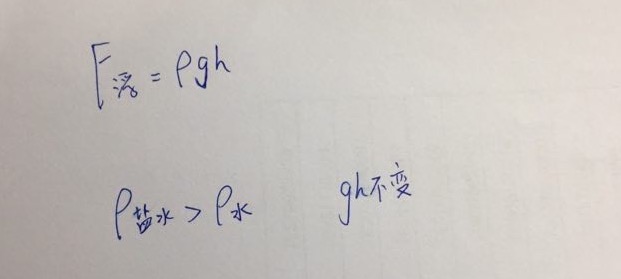 F浮 = ρgh
ρ盐水 > ρ水 gh不变